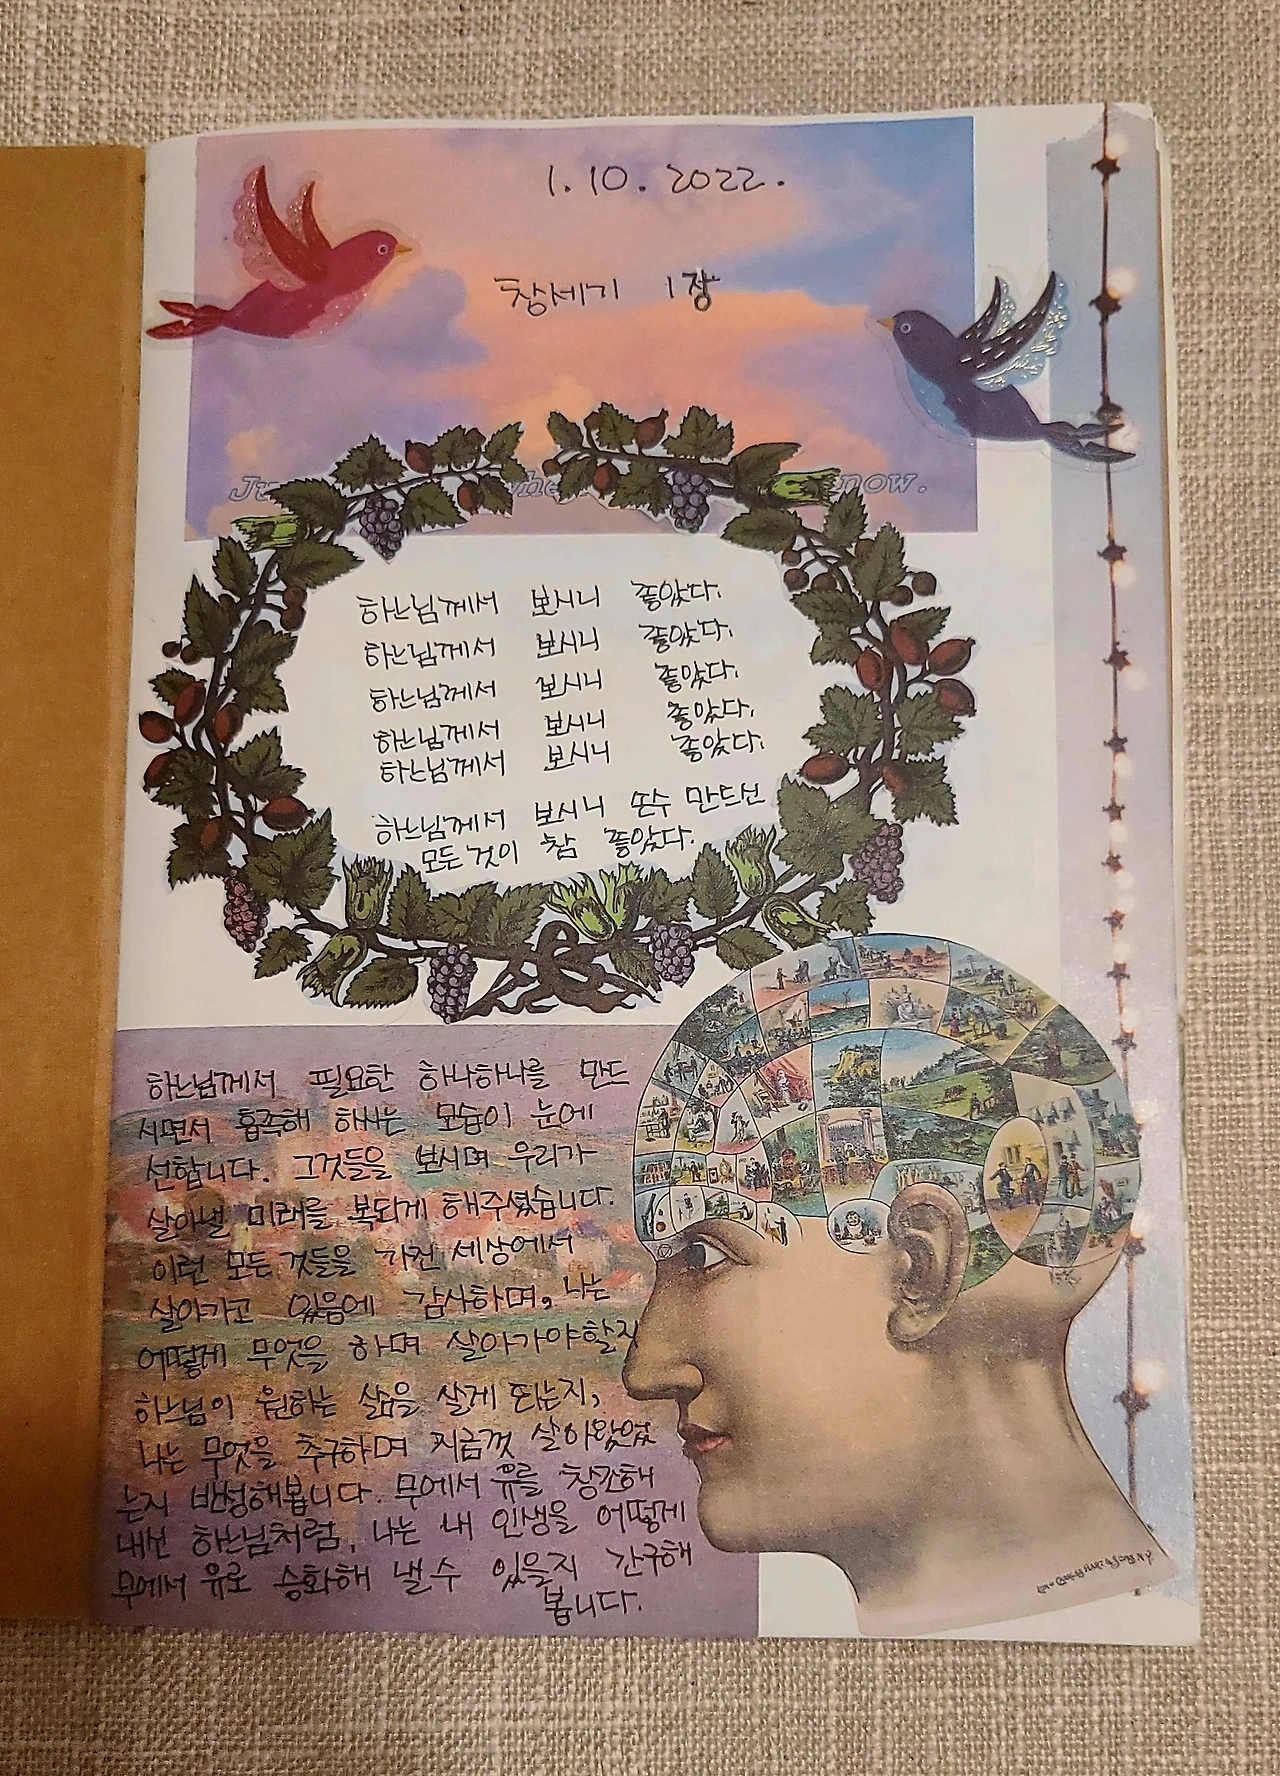 1.10.2022.
창세기 1장
now.
하느님께서 보시니 좋았다.
하느님께서 보시니 좋았다.
하느님께서 보시니 좋았다.
하느님께서 보시니 좋았다.
하느님께서 보시니 좋았다.
하느님께서 보시니 손수 만드신
모든 것이 참 좋았다.
하느님께서 필요한 하나하나를 만드
시면서 흡족해 하시는 모습이 눈에
선합니다. 그것들을 보시며 우리가
살아낼 미래를 복되게 해주셨습니다.
이런 모든 것들을 가진 세상에서
살아가고 있음에 감사하며, 나는
어떻게 무엇을 하며 살아가야할지
하느님이 원하는 삶을 살게 되는지,
나는 무엇을 추구하며 지금껏 살아왔었
는지 반성해봅니다. 무에서 유를 창조해
내신 하느님처럼, 나는 내 인생을 어떻게
무에서 유로 승화해 낼 수 있을지 간구해
봅니다.